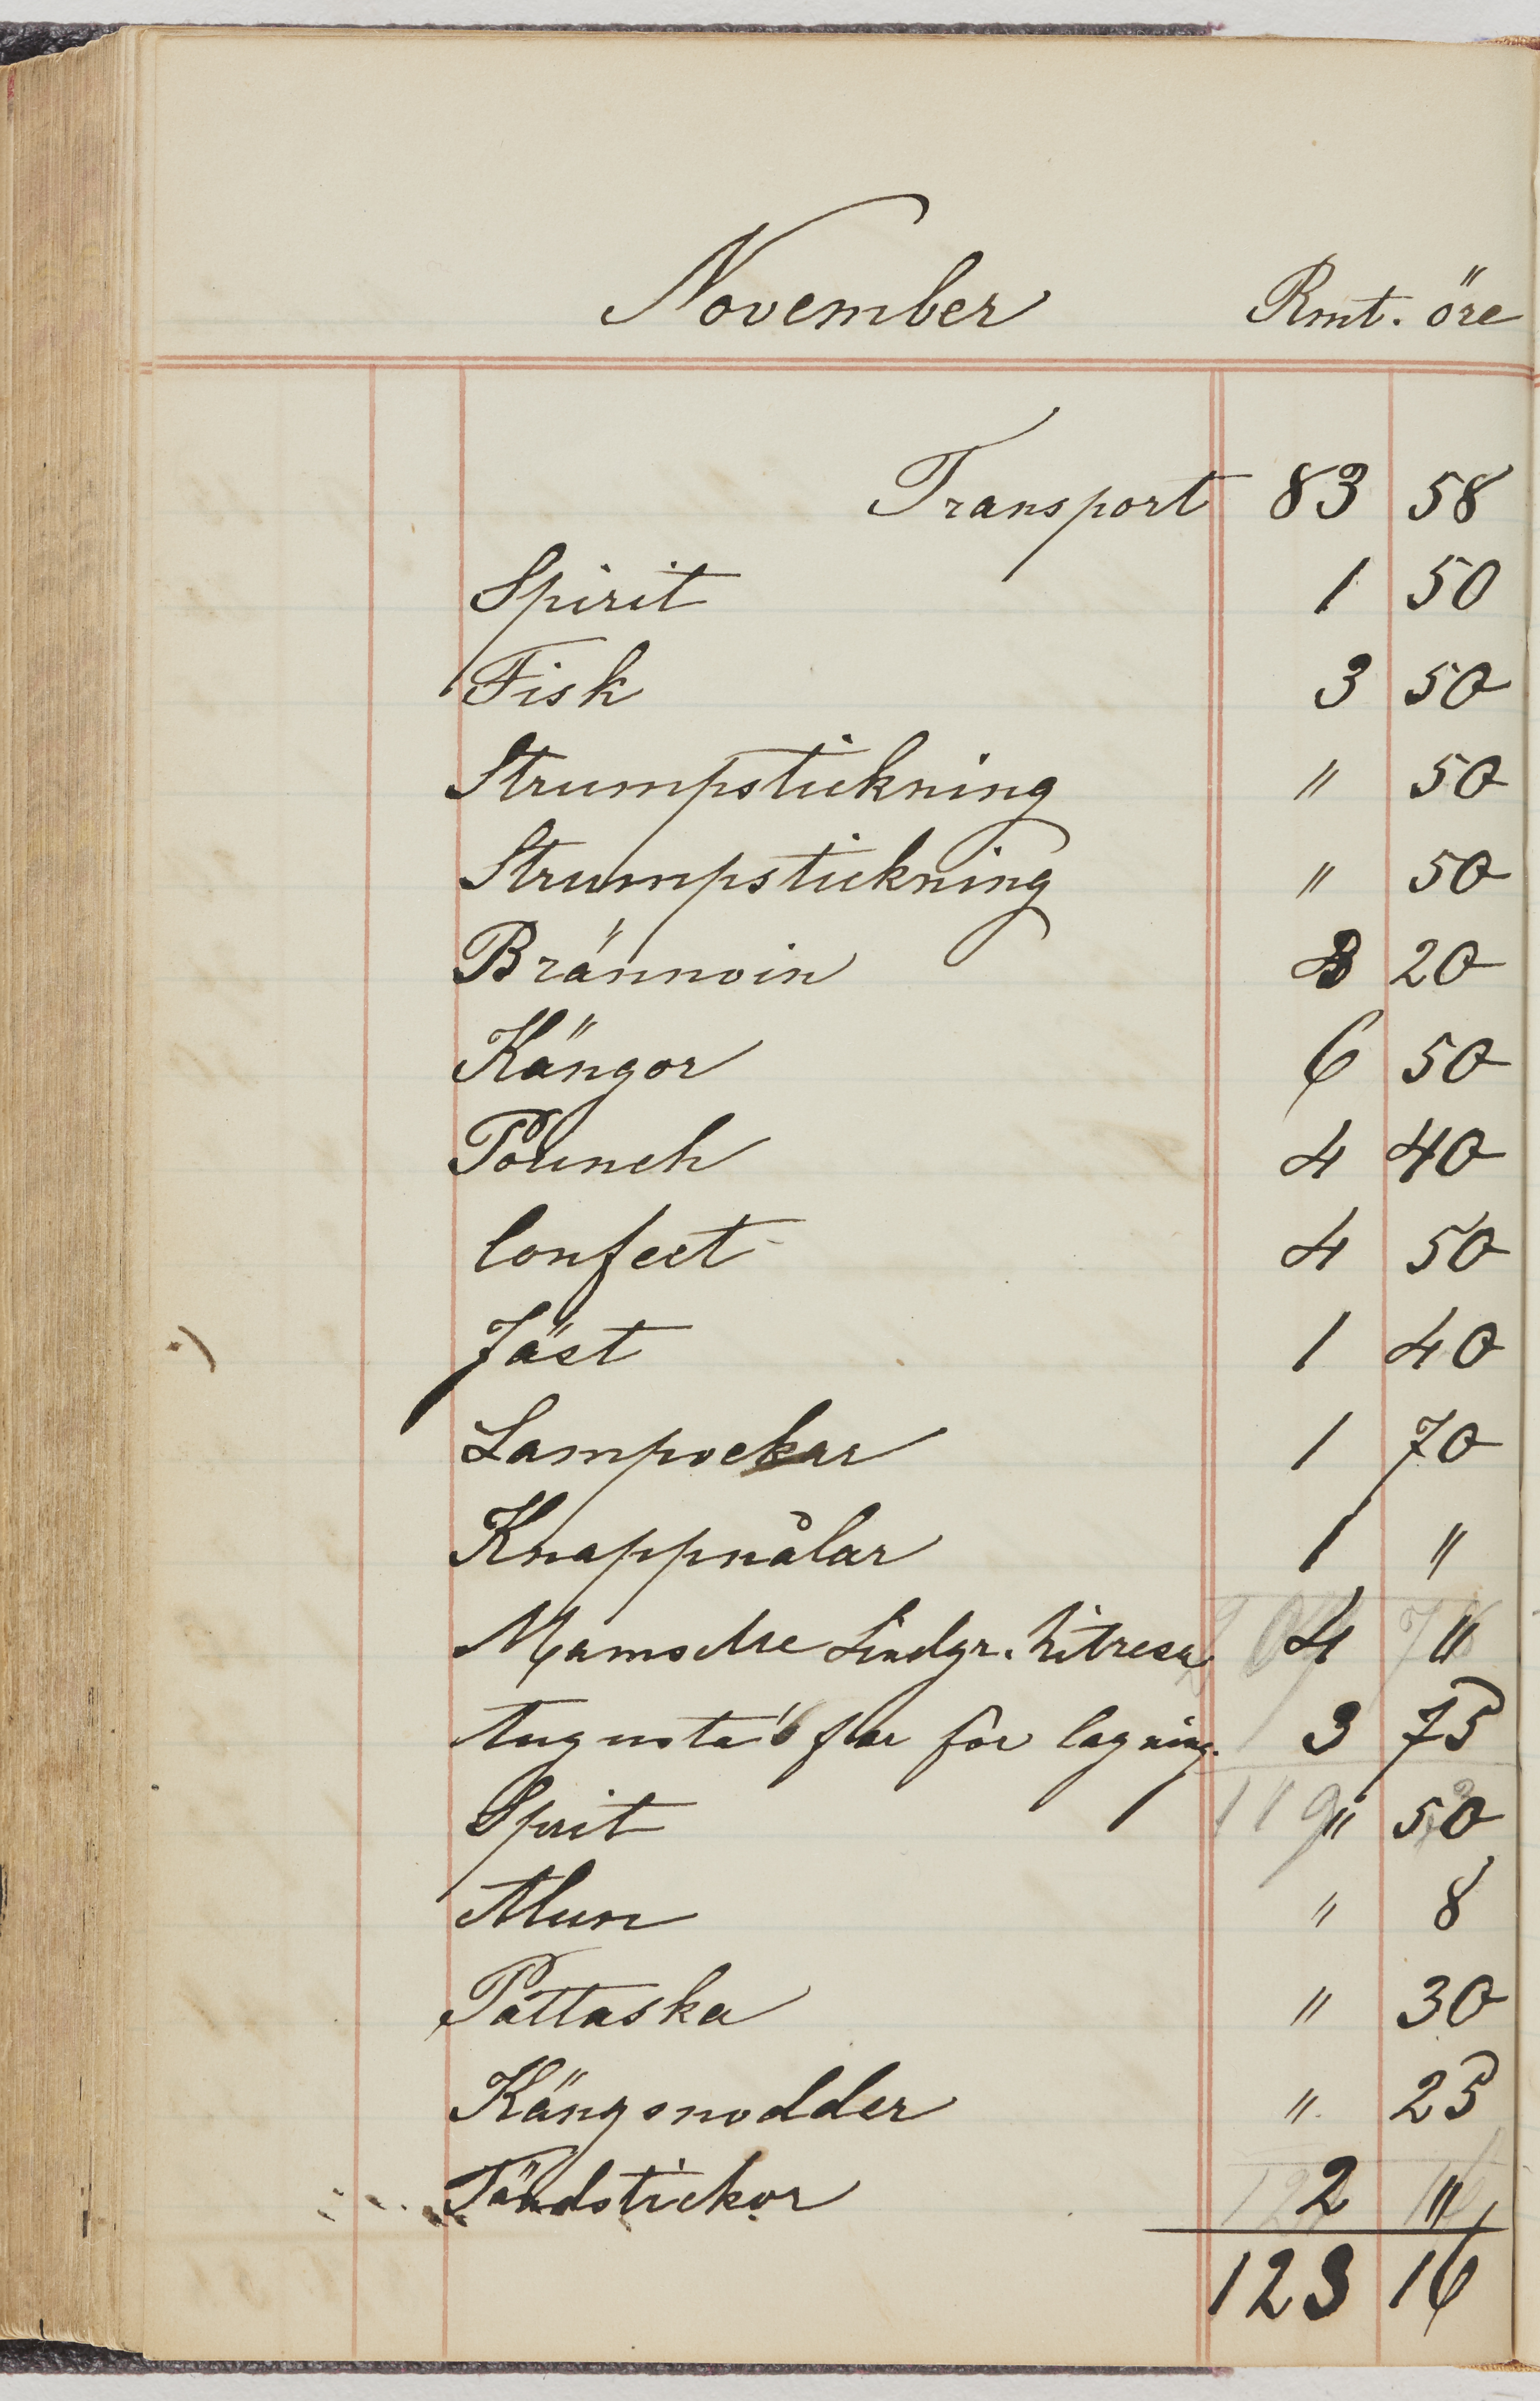 November Rmt. öre
Transport 83 58
Spirit 1 50
Fisk 3 50
Strumpstickning " 50
Strumpstickning " 50
Brännvin 3 20
Kängor 6 50
Pounch 4 40
Confect 4 50
Jäst 1 40
Lampvekar 1 70
Knappnålar 1 "
Mamselle Lindgr. hitresa 4 "
Augusta's far för lagning. 3 75
Sprit " 50
119
Alun " 8
Pottaska " 30
Kängsnodder " 25
Tändstickor 2 "
123 16